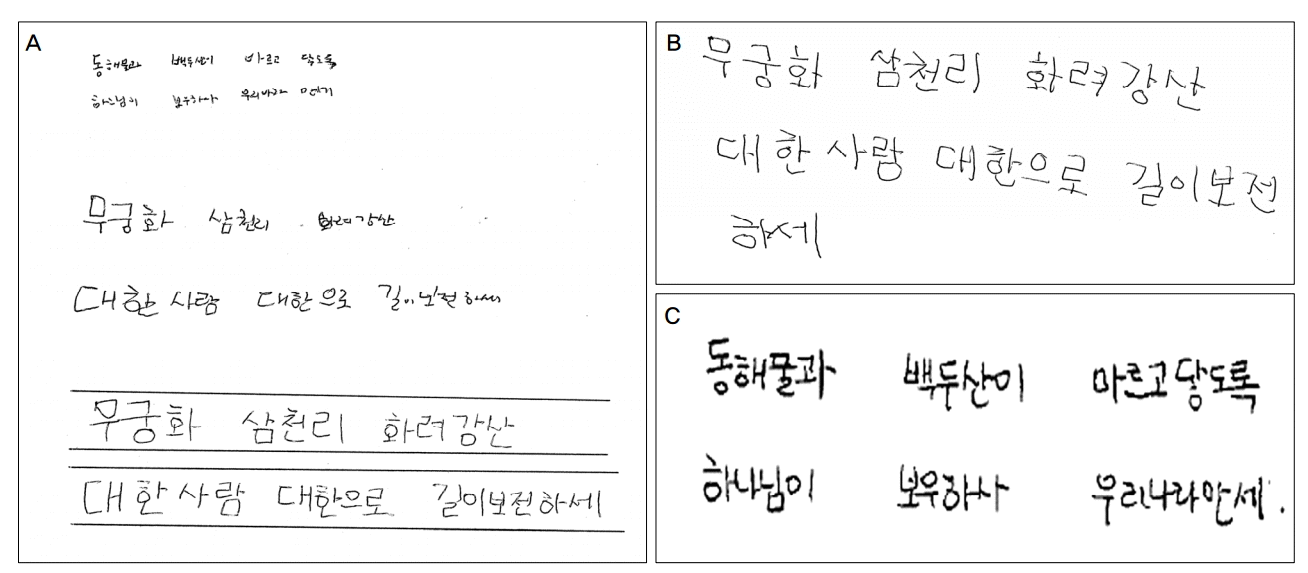 A
동해물과 백두산이 마르고 닳도록
하느님이 보우하사 우리나라 만세
무궁화 삼천리 화려강산
대한 사람 대한으로 길이보전 하세
무궁화 삼천리 화려강산
대한사람 대한으로 길이보전하세
B
무궁화 삼천리 화려강산
대한사람 대한으로 길이보전
하세
C
동해물과 백두산이 마르고닿도록
하나님이 보우하사 우리나라만세.